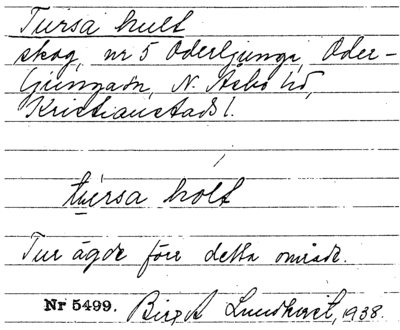 Tursa hult
skog, nr 5 Oderljunga, Oder-
ljunga sn, N. Åsbo hd,
Kristianstads l.
tu̲rsa holt
Tur ägde förr detta område.
Nr 5499. Birgit Lundkvist, 1938.